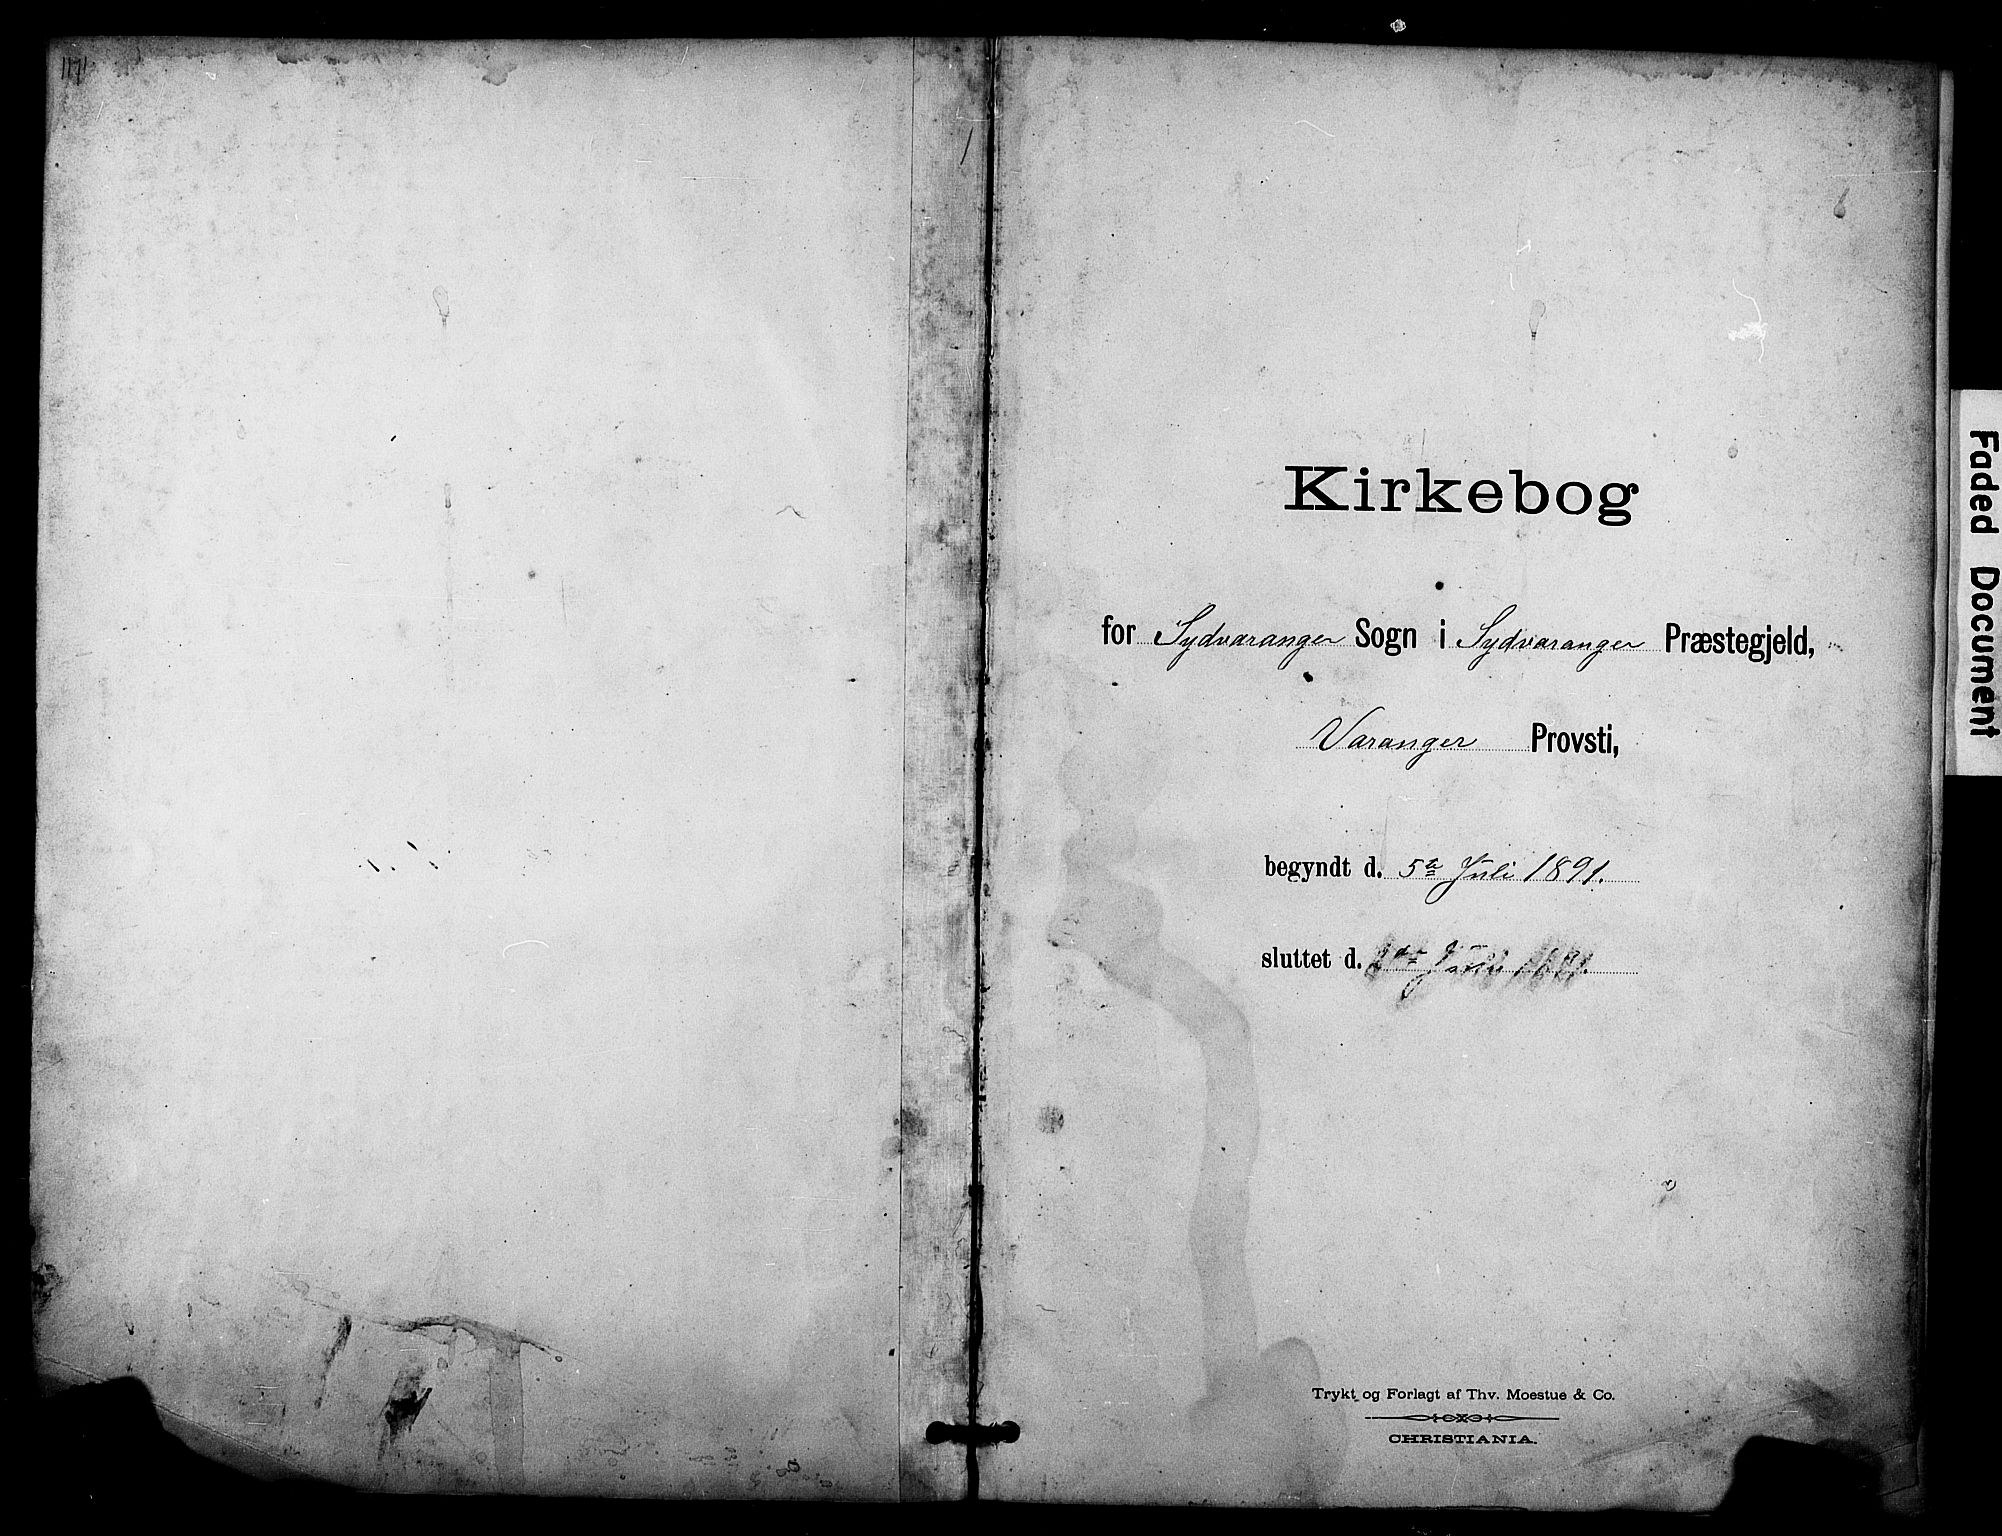 Kirkebog
for Sydvaranger Sogn i Sydvaranger Præstegjeld,
Varanger Provsti,
begyndt d. 5te Juli 1891.
sluttet d.
Trykt og Forlagt af Thv. Moestue & Co.
CHRISTIANIA.
Faded Document